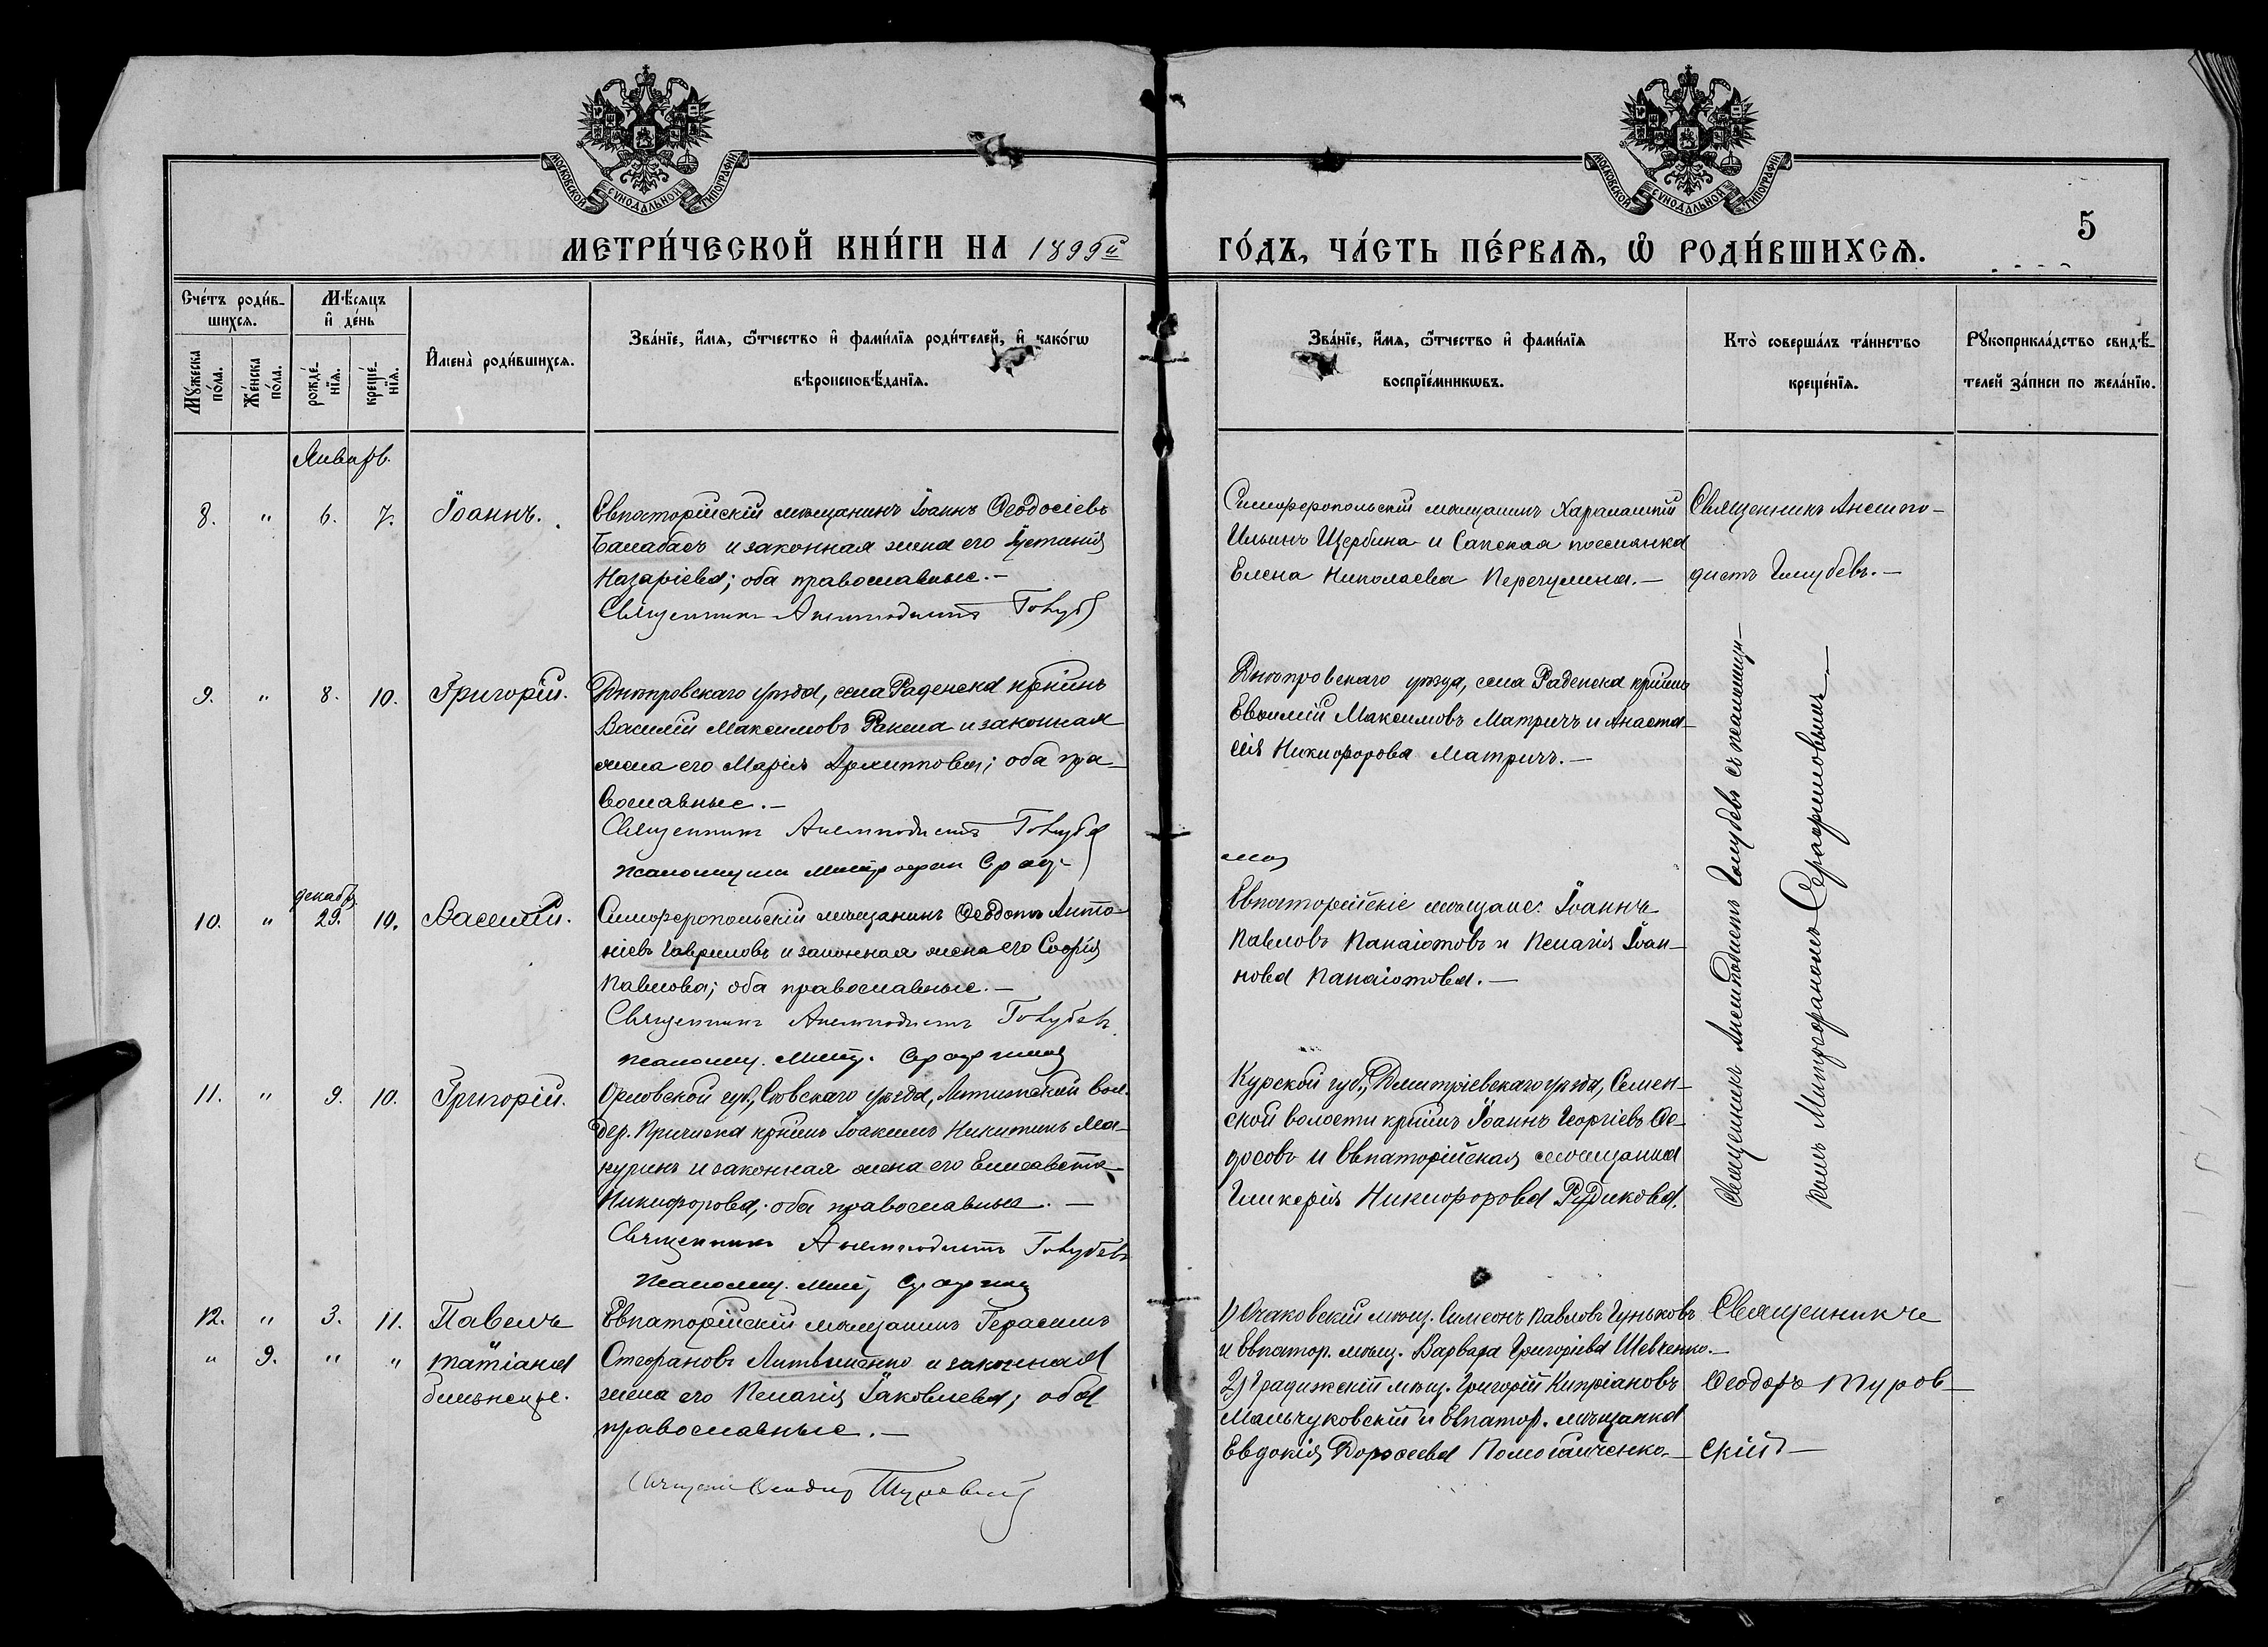 МОСКОВСКОЙ СѴНОДАЛЬНОЙ ТИПОГРАФІИ.
МОСКОВСКОЙ СѴНОДАЛЬНОЙ ТИПОГРАФІИ.
5
МЕТРИ́ЧЕСКОЙ КНИ́ГИ НА 1899й ГО́ДЪ, ЧА́СТЬ ПЕ́РВАѦ, Ѡ҆ РОДИ́ВШИХСѦ.
Сче́тъ роди́в-
шихсѧ.
Мꙋжеска по́ла.
Же́нска по́ла.
Мѣ́сѧцъ и҆ де́нь
рожде́нїѧ.
креще́нїѧ.
И҆мена̀ роди́вшихсѧ.
Зва́нїе, и҆́мѧ, ѻ҆́тчество и҆ фами́лїѧ роди́телей, и҆ како́гѡ
вѣроисповѣ́данїѧ.
Зва́нїе, и҆́мѧ, ѻ҆́тчество и҆ фами́лїѧ
воспрїе́мникѡвъ.
Кто̀ соверша́лъ та́инство
креще́нїѧ.
Рꙋкоприкла́дство свидѣ́-
телей за́писи по жела́нїю.
Январь.
8. " 6. 7. Іоаннъ.
Евпаторійскій мѣщанинъ Іоаннъ Ѳеодосіевъ
Балабасъ и законная жена его Іустинія
Назаріева; оба православные.—
Священникъ Анемподистъ Голуб
Симферопольскій мѣщанинъ Харалампій
Ильинъ Щербина и Сакская поселянка
Елена Николаева Перечулина.—
Священникъ Анемпо-
дистъ Голубевъ.—
9. " 8. 10. Григорій.
Днѣпровскаго уѣзда, села Раденска кр҃нинъ
Василій Максимовъ Ракша и законная
жена его Марія Архиппова; оба пра-
вославные.—
Священникъ Анемподистъ Голубев
Псаломщикъ Митрофан Сераф-
Днѣпровскаго уѣзда, села Раденска кр҃нинъ
Евѳимій Максимовъ Матричъ и Анаста-
сія Никифорова Матричъ.—
имов
Священникъ Анемподистъ Голубевъ съ псаломщи-
комъ Митрофаномъ Серафимовымъ—
10. " декабр. 29. 10. Василій.
Симферопольскій мѣщанинъ Ѳеодотъ Анто-
ніевъ Гавриловъ и законная жена его Софія
Павлова; оба православные.—
Священникъ Анемподистъ Голубев
Псаломщ. Мит. Серафимов
Евпаторійскіе мѣщане: Іоаннъ
Павловъ Панаіотовъ и Пелагія Іоан-
нова Панаіотова.—
11. " 9. 10. Григорій.
Орловской губ., Сѣвскаго уѣзда, вол.
дер. кр҃нинъ Іоакимъ Никитинъ Ма-
куринъ и законная жена его Елисавета
Никифорова; оба православные.—
Священникъ Анемподистъ Голубевъ
Псаломщ. Мит. Серафимов
Курской губ., Дмитріевскаго уѣзда, Семен-
ской волости кр҃нинъ Іоаннъ Георгіевъ Ѳе-
досовъ и Евпаторійская мѣщанка
Гликерія Никифорова Рудикова.
12. " 3. 11. Павелъ
" 9. " " Татіана
близнецы.
Евпаторійскій мѣщанинъ Герасимъ
Стефановъ Литвиненко и законная
жена его Пелагія Іаковлева; оба
православные.—
Священ. Ѳеодоръ Туровскій
1) Очаковскій мѣщ. Симеонъ Павловъ Гуньковъ
и Евпатор. мѣщ. Варвара Григоріева Шевченко.—
2) Градижскій мѣщ. Григорій Кипріановъ
Мальчуковскій и Евпатор. мѣщанка
Евдокія Дороѳеева —
Священникъ
Ѳеодоръ Туров-
скій—